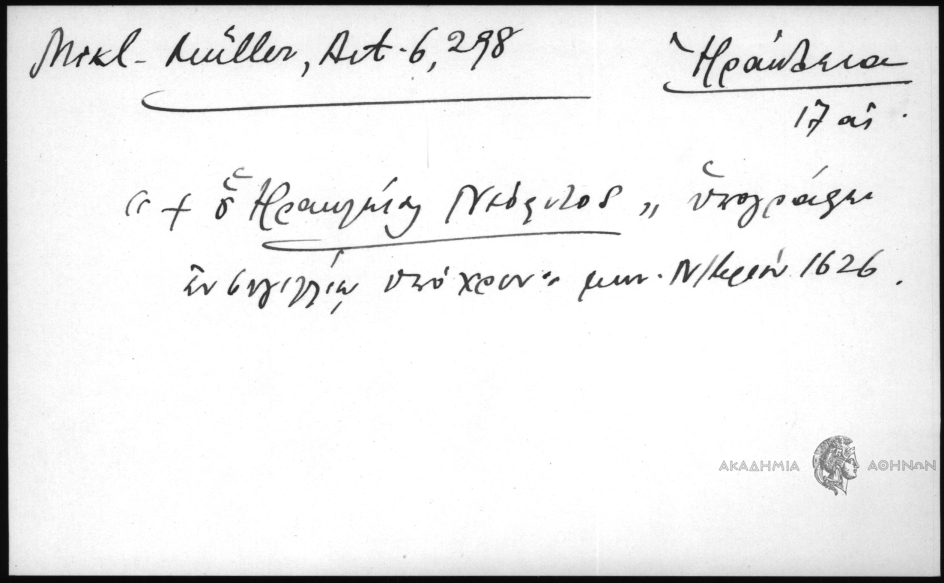 Mikl- Müller, Act. 6, 298
Ἡράκλεια
17 αἰ.
"+ ὁ Ἡρακλείας Νεόφυτος", ὑπογράφει
ἐν σιγιλλίῳ ὑπὸ χρον. μην. Ν/βρίῳ 1626.
ΑΚΑΔΗΜΙΑ ΑΘΗΝΩΝ